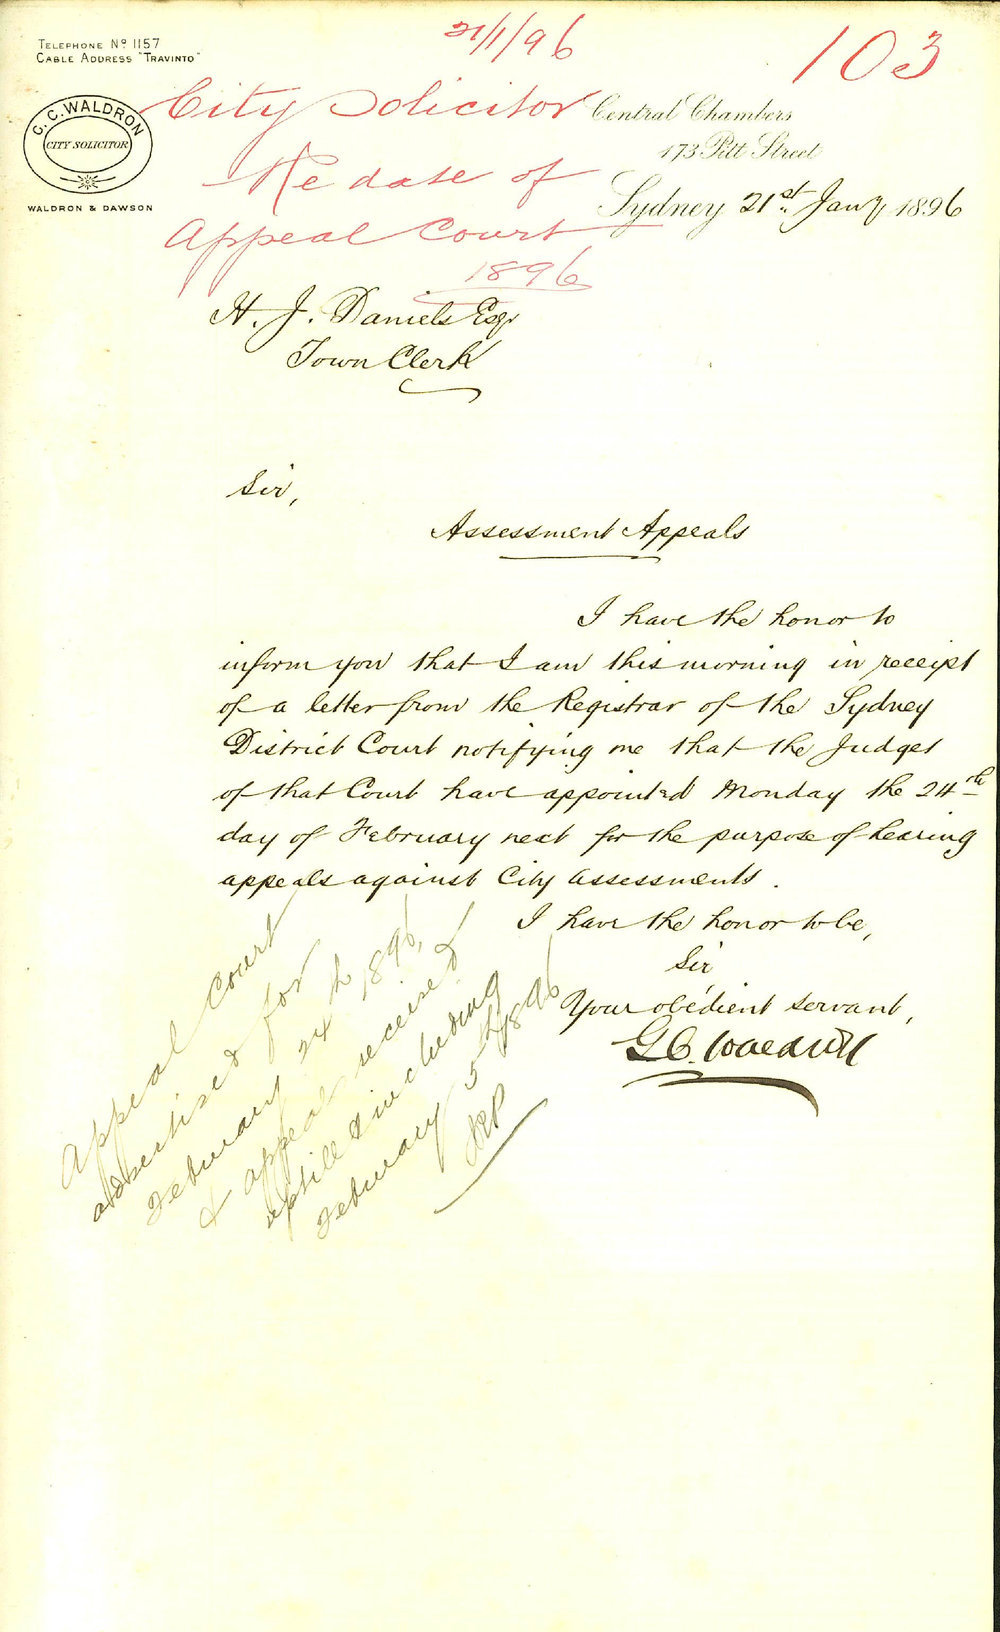 21/1/96
103
TELEPHONE Nº 1157
CABLE ADDRESS "TRAVINTO"
G. C. WALDRON
CITY SOLICITOR
WALDRON & DAWSON
City Solicitor
Re date of
Appeal Court
1896
Central Chambers
173 Pitt Street
Sydney 21st. Jany 1896
H. J. Daniels Esqr
Town Clerk
Sir,
Assessment Appeals
I have the honor to
inform you that I am this morning in receipt
of a letter from the Registrar of the Sydney
District Court notifying me that the Judges
of that Court have appointed Monday the 24th
day of February next for the purpose of hearing
appeals against City Assessments.
I have the honor to be,
Sir
Your obedient servant,
G C. Waldron
Appeal Court
advertised for
February 24th 1896,
& appeals received
up till & including
February 5th 1896